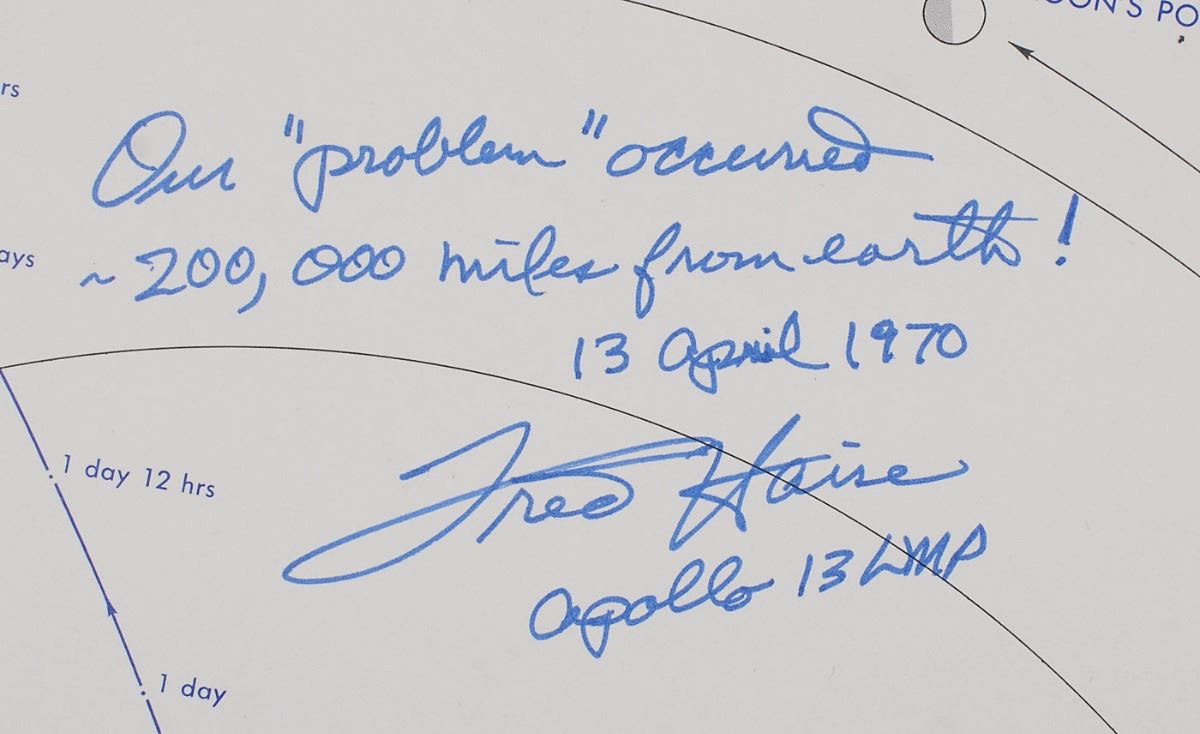 MOON'S PO
rs
Our "problem" occurred
ays
~ 200,000 miles from earth!
13 April 1970
1 day 12 hrs
Fred Haise
Apollo 13 LMP
1 day